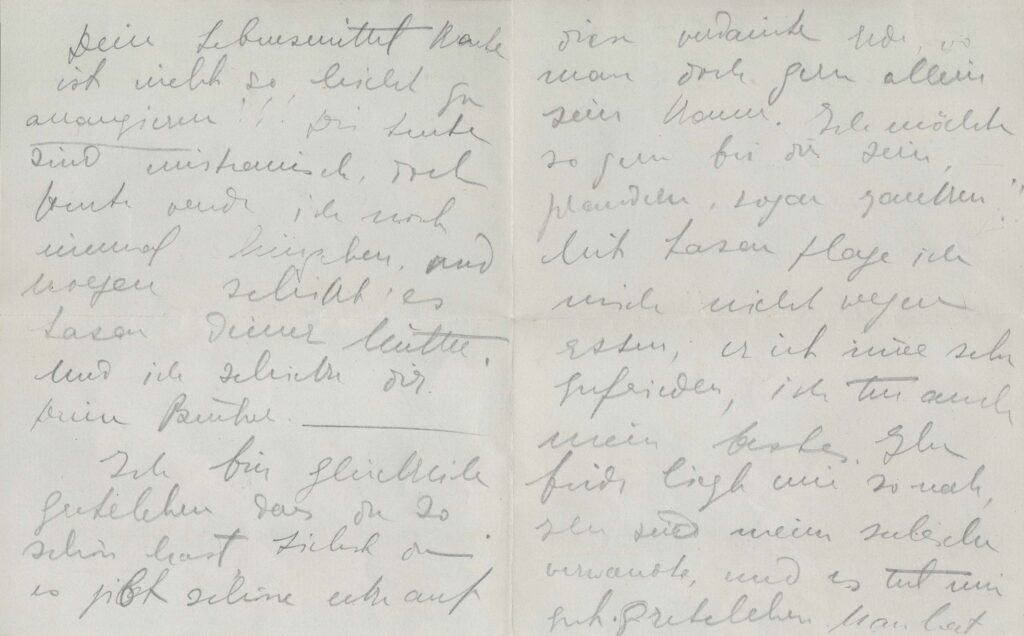 Dein Lebensmittel Karte
ist nicht so leicht zu
arrangieren!!! Die Leute
sind mistrauisch, doch
heute werde ich noch
einmal hingehen, und
morgen schickt es
Lasar deiner Mutter.
Und ich schicke dir
dein Bücher.
Ich bin glücklich
Gretelchen dass du so
schön hast, siehst du
es gibt schöne ecke auf
diese verdamte Erde, wo
man doch gern allein
sein kann. Ich möchte
so gern bei dir sein,
plaudern, sogar zanken!!
Mit Lasar plage ich
mich nicht wegen
Essen, er ist immer sehr
zufrieden, ich tu auch
mein bestes. Ihr
beide liegt mir so nah,
Ihr seid meine
verwandte, und es tut mir
gut. Gretelchen. Man hat